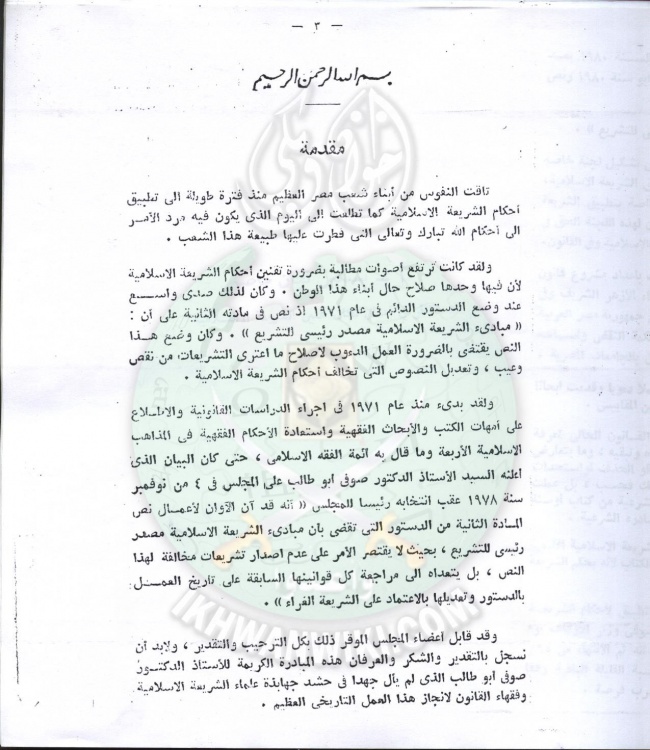 - ٣ -
بسم الله الرحمن الرحيم
مقدمة
تاقت النفوس من أبناء شعب مصر العظيم منذ فترة طويلة الى تطبيق
أحكام الشريعة الاسلامية كما تطلعت الى اليوم الذى يكون فيه مرد الأمر
الى أحكام الله تبارك وتعالى التى فطرت عليها طبيعة هذا الشعب .
ولقد كانت ترتفع أصوات مطالبة بضرورة تقنين أحكام الشريعة الاسلامية
لأن فيها وحدها صلاح حال أبناء هذا الوطن . وكان لذلك صدى واسع
عند وضع الدستور الدائم فى عام ١٩٧١ اذ نص فى مادته الثانية على أن :
« مبادىء الشريعة الاسلامية مصدر رئيسى للتشريع » . وكان وضع هذا
النص يقتضى بالضرورة العمل الدءوب لاصلاح ما اعترى التشريعات من نقص
وعيب ، وتعديل النصوص التى تخالف أحكام الشريعة الاسلامية .
ولقد بدىء منذ عام ١٩٧١ فى اجراء الدراسات القانونية والاطلاع
على أمهات الكتب والأبحاث الفقهية واستعادة الأحكام الفقهية فى المذاهب
الاسلامية الأربعة وما قال به أئمة الفقه الاسلامى ، حتى كان البيان الذى
أعلنه السيد الأستاذ الدكتور صوفى أبو طالب على المجلس فى ٤ من نوفمبر
سنة ١٩٧٨ عقب انتخابه رئيسا للمجلس « أنه قد آن الأوان لاعمال نص
المادة الثانية من الدستور التى تقضى بأن مبادىء الشريعة الاسلامية مصدر
رئيسى للتشريع ، بحيث لا يقتصر الأمر على عدم اصدار تشريعات مخالفة لهذا
النص ، بل يتعداه الى مراجعة كل قوانينها السابقة على تاريخ العمل
بالدستور وتعديلها بالاعتماد على الشريعة الغراء » .
وقد قابل أعضاء المجلس الموقر ذلك بكل الترحيب والتقدير ، ولابد أن
نسجل بالتقدير والشكر والعرفان هذه المبادرة الكريمة للأستاذ الدكتور
صوفى أبو طالب الذى لم يأل جهدا فى حشد جهابذة علماء الشريعة الاسلامية
وفقهاء القانون لانجاز هذا العمل التاريخى العظيم .
IKHWANWIKI.COM